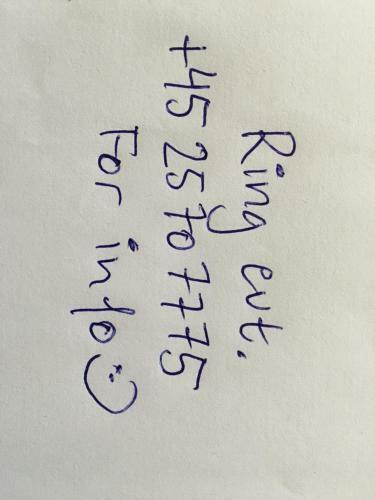 Ring evt.
+45 25707775
For info :)